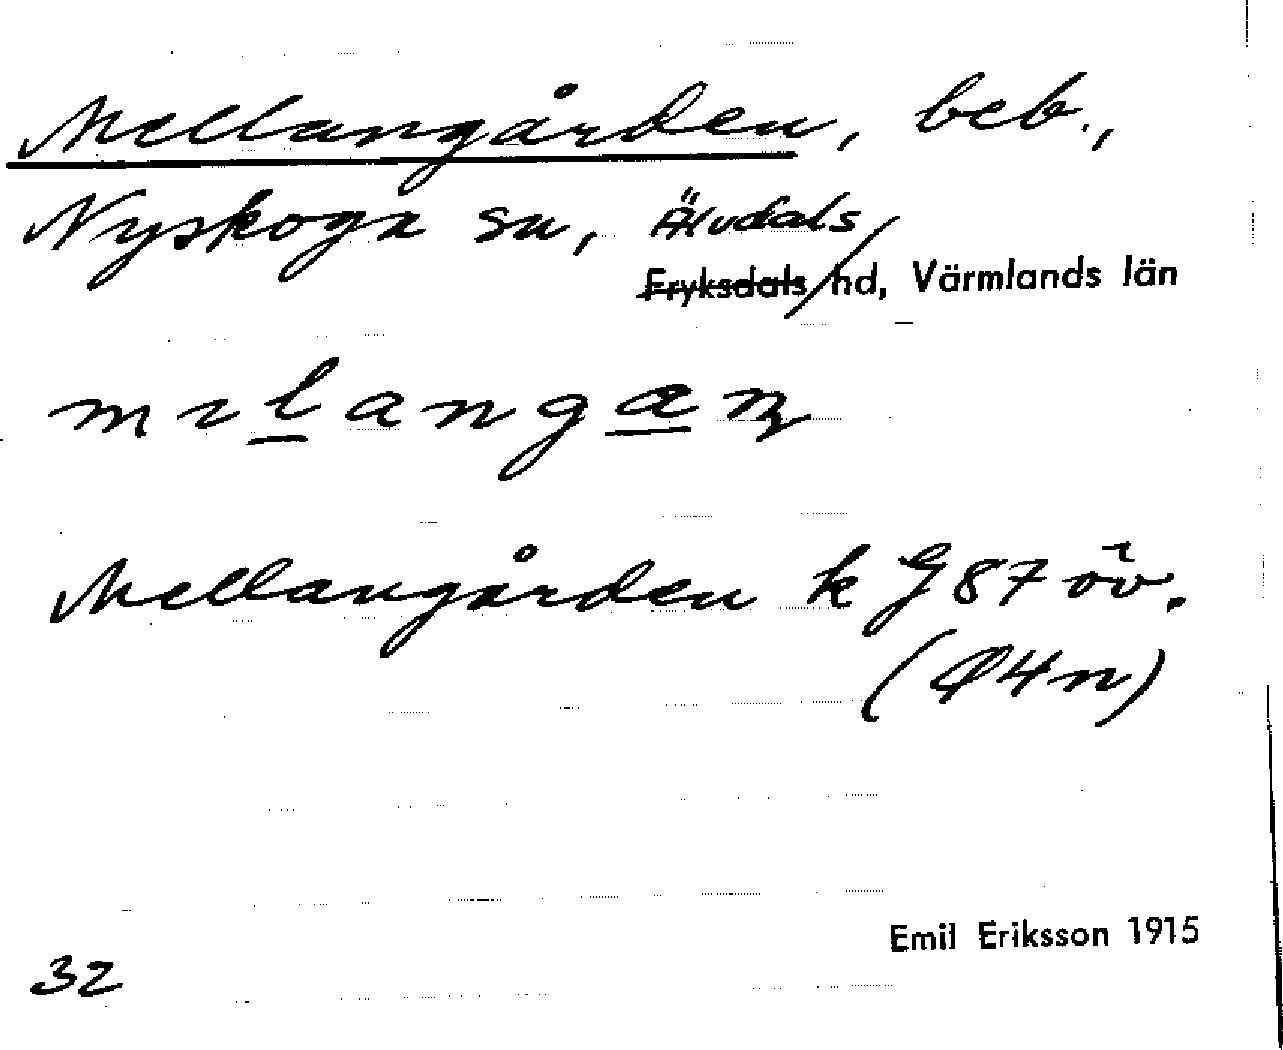 Mellangården, beb.,
Nyskoga sn, Älvdals
Fryksdals hd, Värmlands län
Mellangården k G87 öv.
(Ö4n)
Emil Eriksson 1915
32